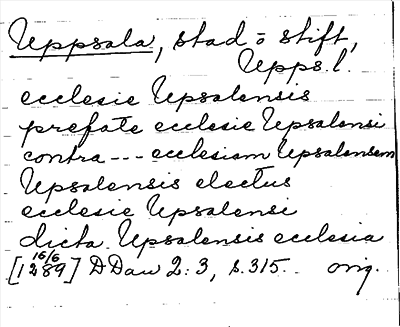 Uppsala, stad o stift,
Upps. l.
ecclesie Upsalensis
prefate ecclesie Upsalensi
contra --- ecclesiam Upsalensem
Upsalensis electus
ecclesie Upsalensi
dicta Upsalensis ecclesia
[16/6 1289] DDan 2:3, s. 315. orig.